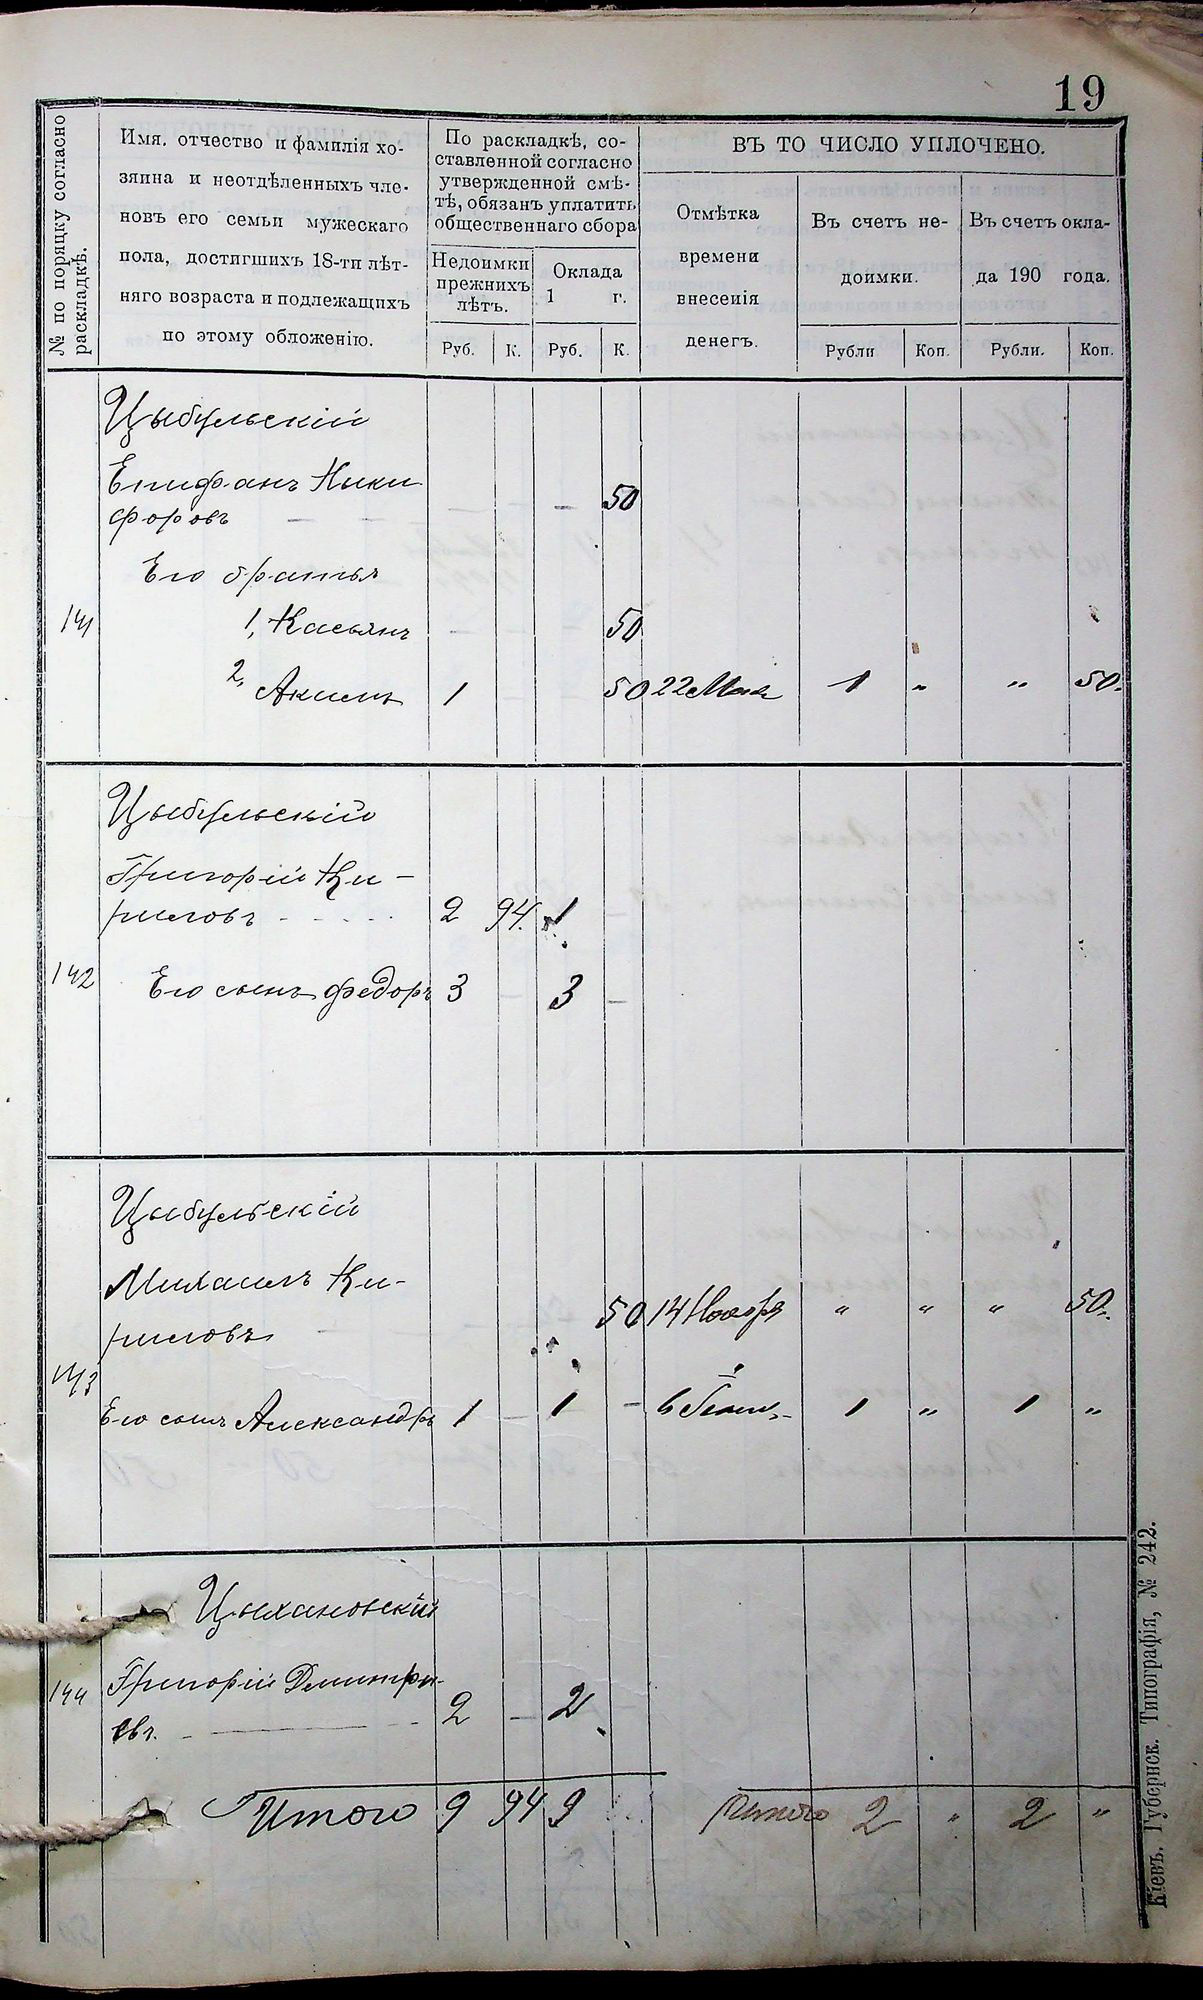 19
№ по поряцку согласно
раскладкѣ.
Имя, отчество и фамилія хо-
зяина и неотдѣленныхъ чле-
новъ его семьи мужескаго
пола, достигшихъ 18-ти лѣт-
няго возраста и подлежащихъ
по этому обложенію.
По раскладкѣ, со-
ставленной согласно
утвержденной смѣ-
тѣ, обязанъ уплатить
общественнаго сбора
Недоимки
прежнихъ
лѣтъ.
Оклада
1 г.
Руб. К. Руб. К.
ВЪ ТО ЧИСЛО УПЛОЧЕНО.
Отмѣтка
времени
внесенія
денегъ.
Въ счетъ не-
доимки.
Въ счетъ окла-
да 190 года.
Рубли Коп. Рубли. Коп.
Цыбульскій
Епифанъ Ники
форовъ — 50
Его братья
141 1, Касьянъ 50
2, Акимъ 1 50 22 Мая 1 „ „ 50.
Цыбульскій
Григорій Ки-
риловъ 2 94. 1
142 Его сынъ Федоръ 3 — 3 —
Цыбульскій
Михаилъ Ки-
риловъ 50 14 Ноября „ „ „ 50.
143 Его сынъ Александръ 1 — 1 — 6 1 „ 1 „
Цыхановскій
144 Григорій Дмитри-
евъ. 2 — 2
Итого 9 94 9 Итого 2 „ 2 „
Кіевъ. Губернск. Типографія, № 242.